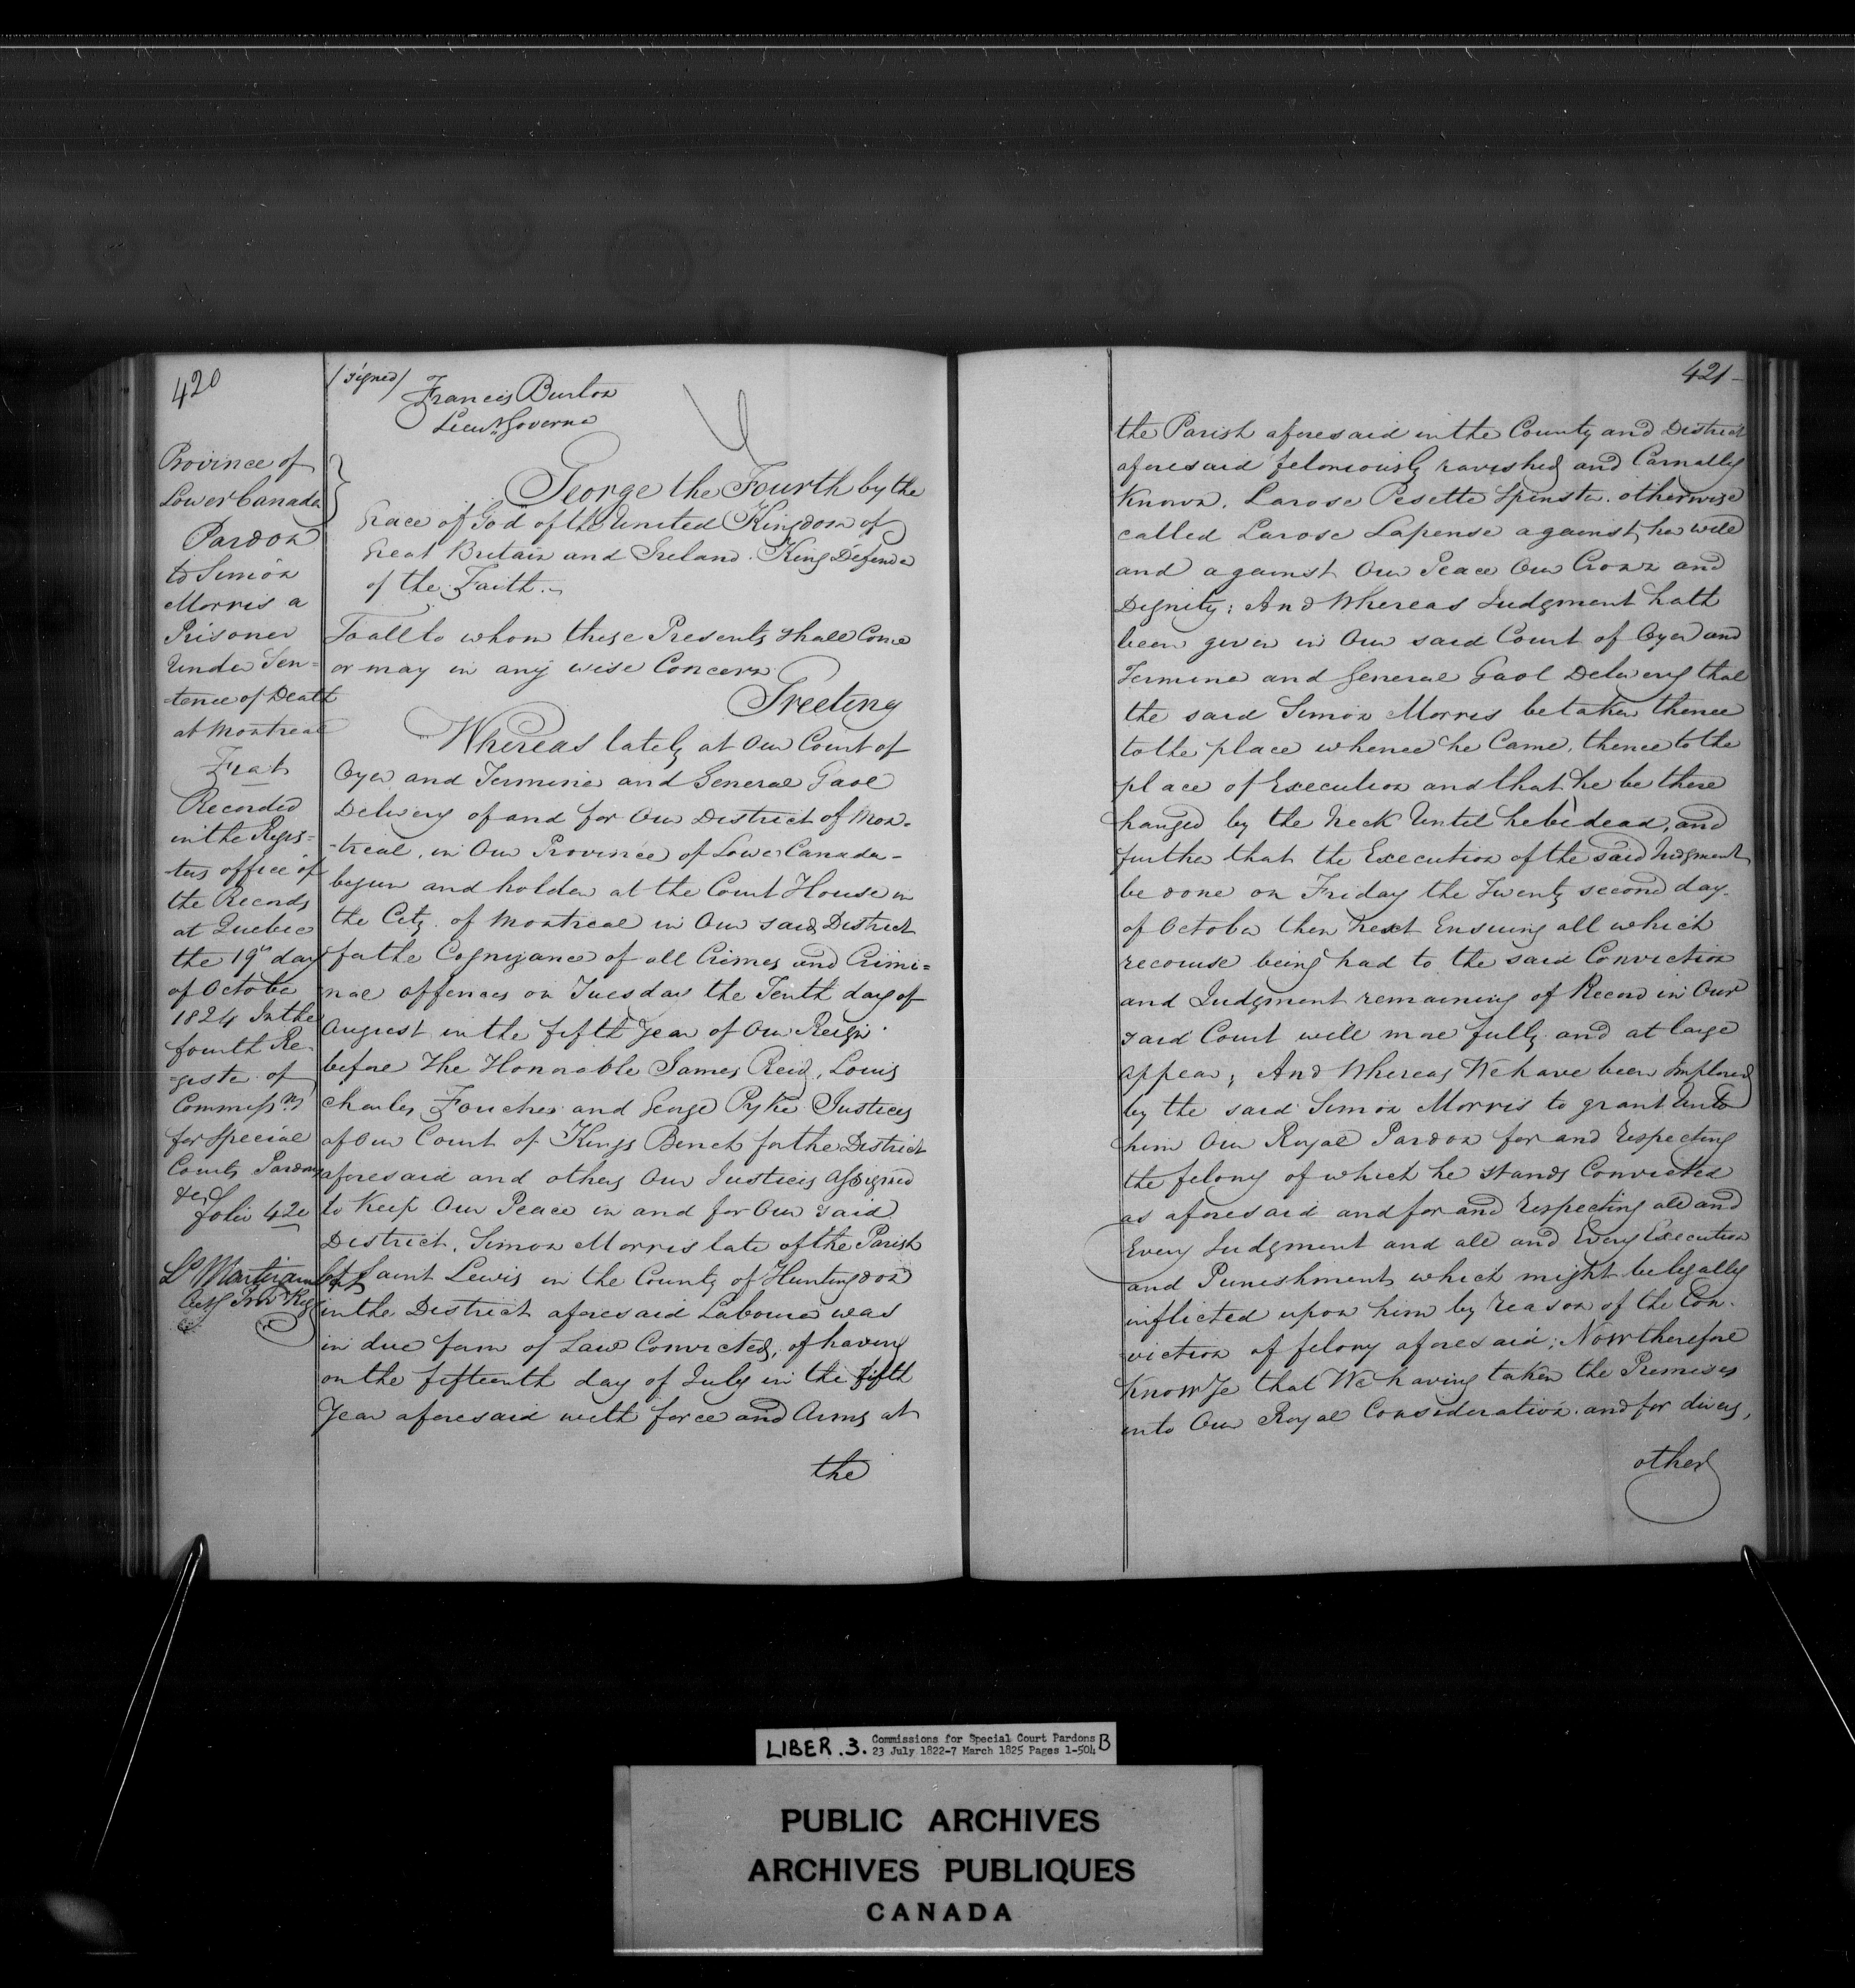 420
(signed)
Francis Burton
Lieut Governor
Province of
Lower Canada
Pardon
to Simon
Morris a
Prisoner
Under Sen=
tence of Death
at Montreal
Fiat
Recorded
in the Regis=
ters office of
the Records
at Quebec
the 19th day
of October
1824 In the
fourth Re-
gister of
Commissns
for Special
Courts Pardons
&c
folio 420
George the Fourth by the
Grace of God of the United Kingdom of
Great Britain and Ireland King Defender
of the Faith.
To all to whom these Presents shall Come
or may in any wise Concern
Greeting
Whereas lately at Our Court of
Oyer and Terminer and General Gaol
Delivery of and for Our District of Mon-
-treal, in Our Province of Lower Canada-
begun and holden at the Court House in
the City of Montreal in Our said District
for the Cognizance of all Crimes and Crimi=
nal offences on Tuesday the Tenth day of
August in the fifth Year of Our Reign
before The Honorable James Reid, Louis
Charles Foucher and George Pyke Justices
of Our Court of Kings Bench for the District
aforesaid and others Our Justices Assigned
to Keep Our Peace in and for Our said
District, Simon Morris late of the Parish
of Saint Lewis in the County of Huntingdon
in the District aforesaid Labourer was
in due form of Law Convicted, of having
on the fifteenth day of July in the fifth
Year aforesaid with force and Arms at
the
421-
the Parish aforesaid in the County and District
aforesaid feloniously ravished and Carnally
Known, Larose Pesette Spinster otherwise
called Larose Lapense against her will
and against Our Peace Our Crown and
Dignity; And Whereas Judgment hath
been given in Our said Court of Oyer and
Terminer and General Gaol Delivery that
the said Simon Morris be taken thence
to the place whence he Came, thence to the
place of Execution and that he be there
hanged by the Neck Until he be dead, and
further that the Execution of the said Judgment
be done on Friday the Twenty second day
of October then Next Ensuing all which
recourse being had to the said Conviction
and Judgment remaining of Record in Our
said Court will more fully and at large
appear; And Whereas We have been Implored
by the said Simon Morris to grant Unto
him Our Royal Pardon for and respecting
the felony of which he stands Convicted
as aforesaid and for and respecting all and
Every Judgment and all and Every Execution
and Punishment which might be legally
inflicted upon him by reason of the Con-
viction of felony aforesaid; Now therefore
Know Ye that We having taken the Premises
into Our Royal Consideration and for divers,
other
LIBER.3. Commissions for Special Court Pardons B
23 July 1822-7 March 1825 Pages 1-504
PUBLIC ARCHIVES
ARCHIVES PUBLIQUES
CANADA